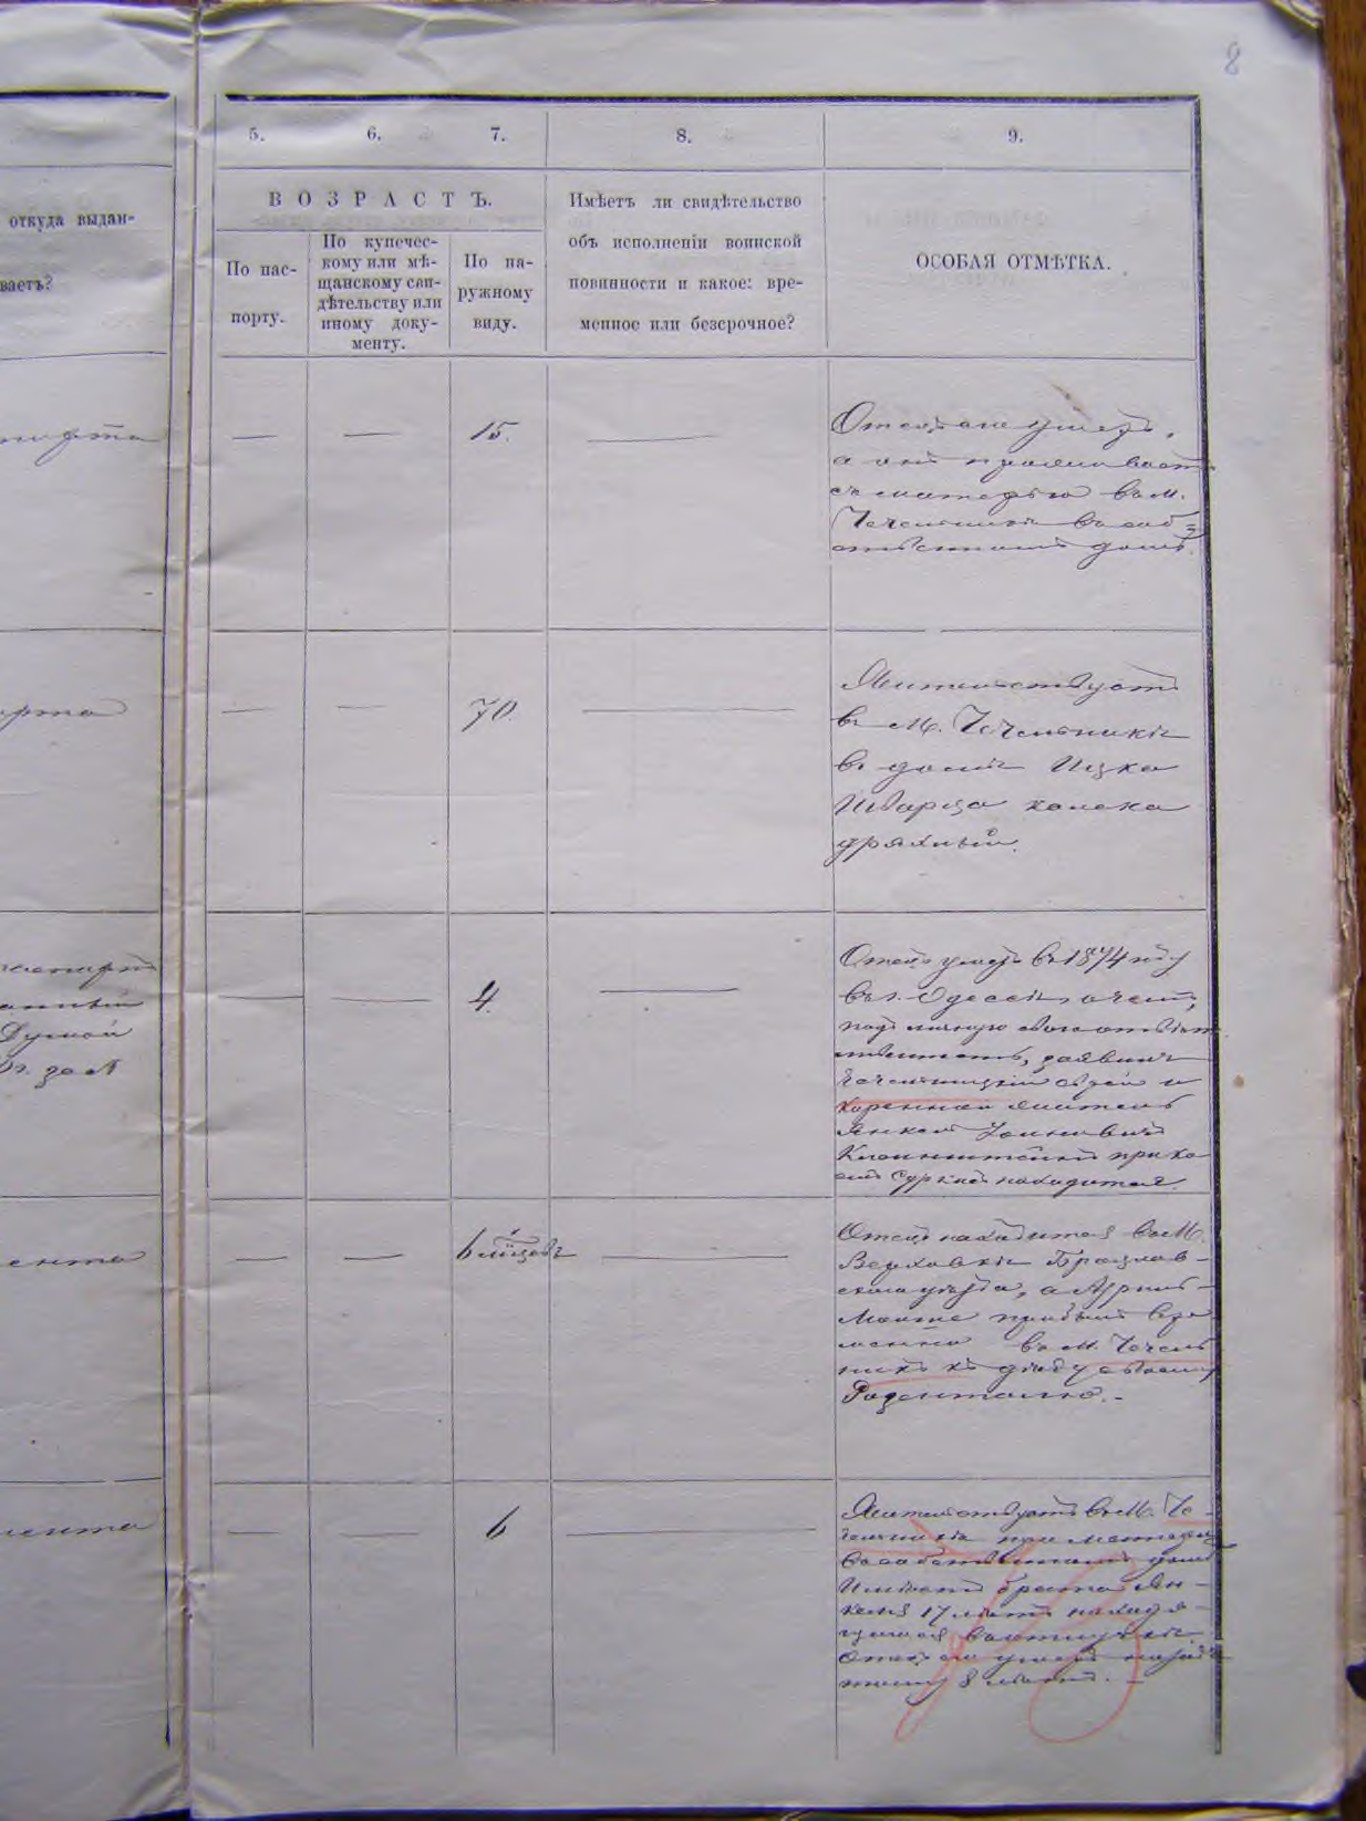 8
5. 6. 7. 8. 9.
откуда выдан-
ваетъ?
ВОЗРАСТЪ.
По пас-
порту.
По купечес-
кому или мѣ-
щанскому сви-
дѣтельству или
иному доку-
менту.
По на-
ружному
виду.
Имѣетъ ли свидѣтельство
объ исполненіи воинской
повинности и какое: вре-
менное или безсрочное?
ОСОБАЯ ОТМѢТКА.
— — 15. —
Отецъ его умеръ,
а онъ проживаетъ
съ матерью въ м.
Чечельникѣ въ соб-
ственномъ домѣ.
— — 70. —
Жительствуетъ
въ м. Чечельникѣ
въ домѣ Ицка
Шварца калека
дряхлый.
— — 4. —
Отецъ умеръ въ 1874 году
въ г. Одессѣ, о чемъ,
подъ личную свою ответ-
ственность, заявилъ
Чечельницкій еврей и
коренной житель
Янкель
находится.
Думой
за №
— — 6 мѣсяцевъ —
Отецъ находится въ м.
Верховкѣ Брацлав-
скаго уѣзда, а
прибылъ вре-
менно въ м. Чечель-
никъ къ дѣду своему
Розенталю. —
— — 6 —
Жительствуетъ въ м. Че-
чельникѣ при матери
въ собственномъ домѣ
Имѣетъ брата Ян-
келя 17 лѣтъ находя-
щагося
Отецъ его умеръ назадъ
тому 8 лѣтъ. —